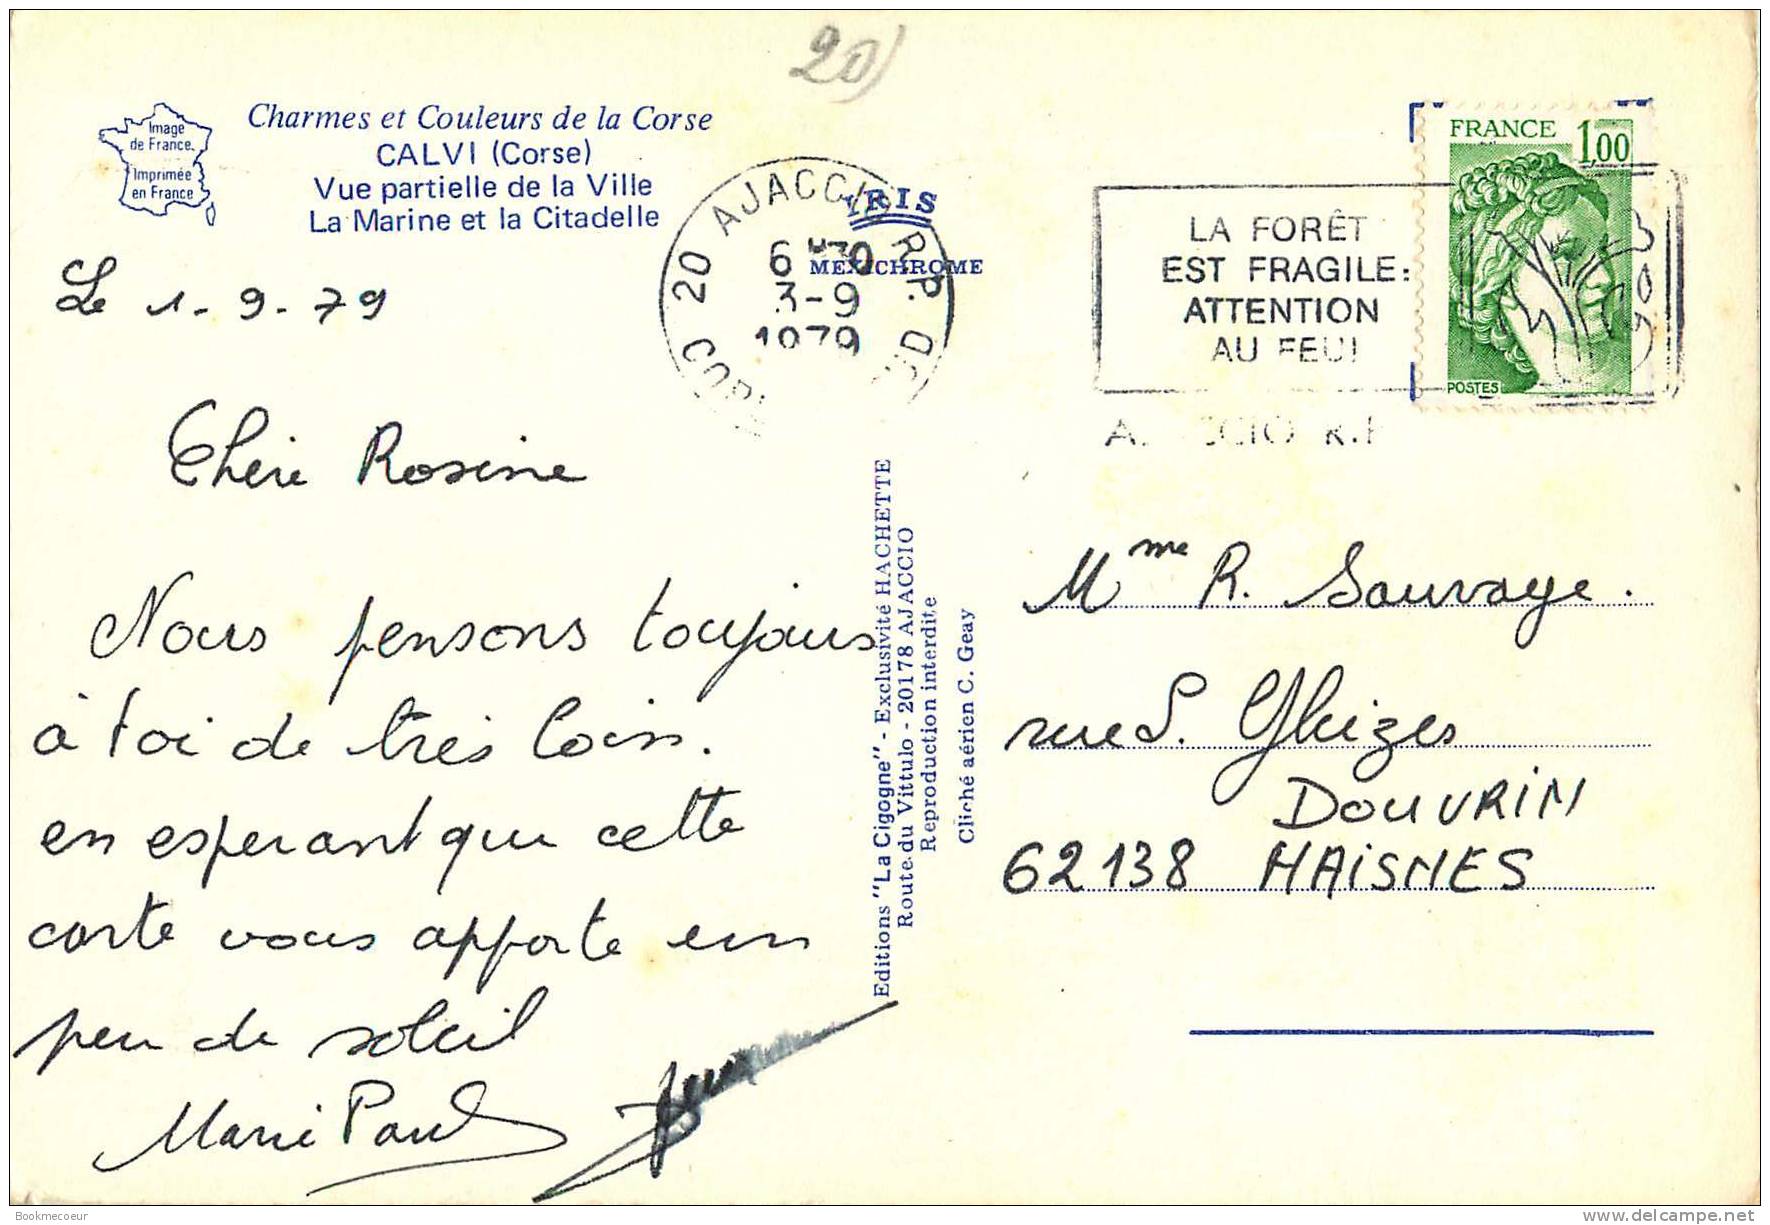 20
Image
de France.
Imprimée
en France
Charmes et Couleurs de la Corse
CALVI (Corse)
Vue partielle de la Ville
La Marine et la Citadelle
IRIS
MEXICHROME
20 AJACCIO R.P. CORSE DU
3-9
1979
LA FORÊT
EST FRAGILE:
ATTENTION
AU FEU!
FRANCE 1,00
POSTES
Le 1-9-79
Chère Rosine
Nous pensons toujours
à toi de très loin.
en esperant que cette
carte vous apporte un
peu de soleil
Marie Paul
Editions "La Cigogne" - Exclusivité HACHETTE
Route du Vittulo - 20178 AJACCIO
Reproduction interdite
Cliché aérien C. Geay
Mme R. Sauvage.
rue S. Gheizes
DOUVRIN
62138 HAISNES
Bookmecoeur
delcampe.net